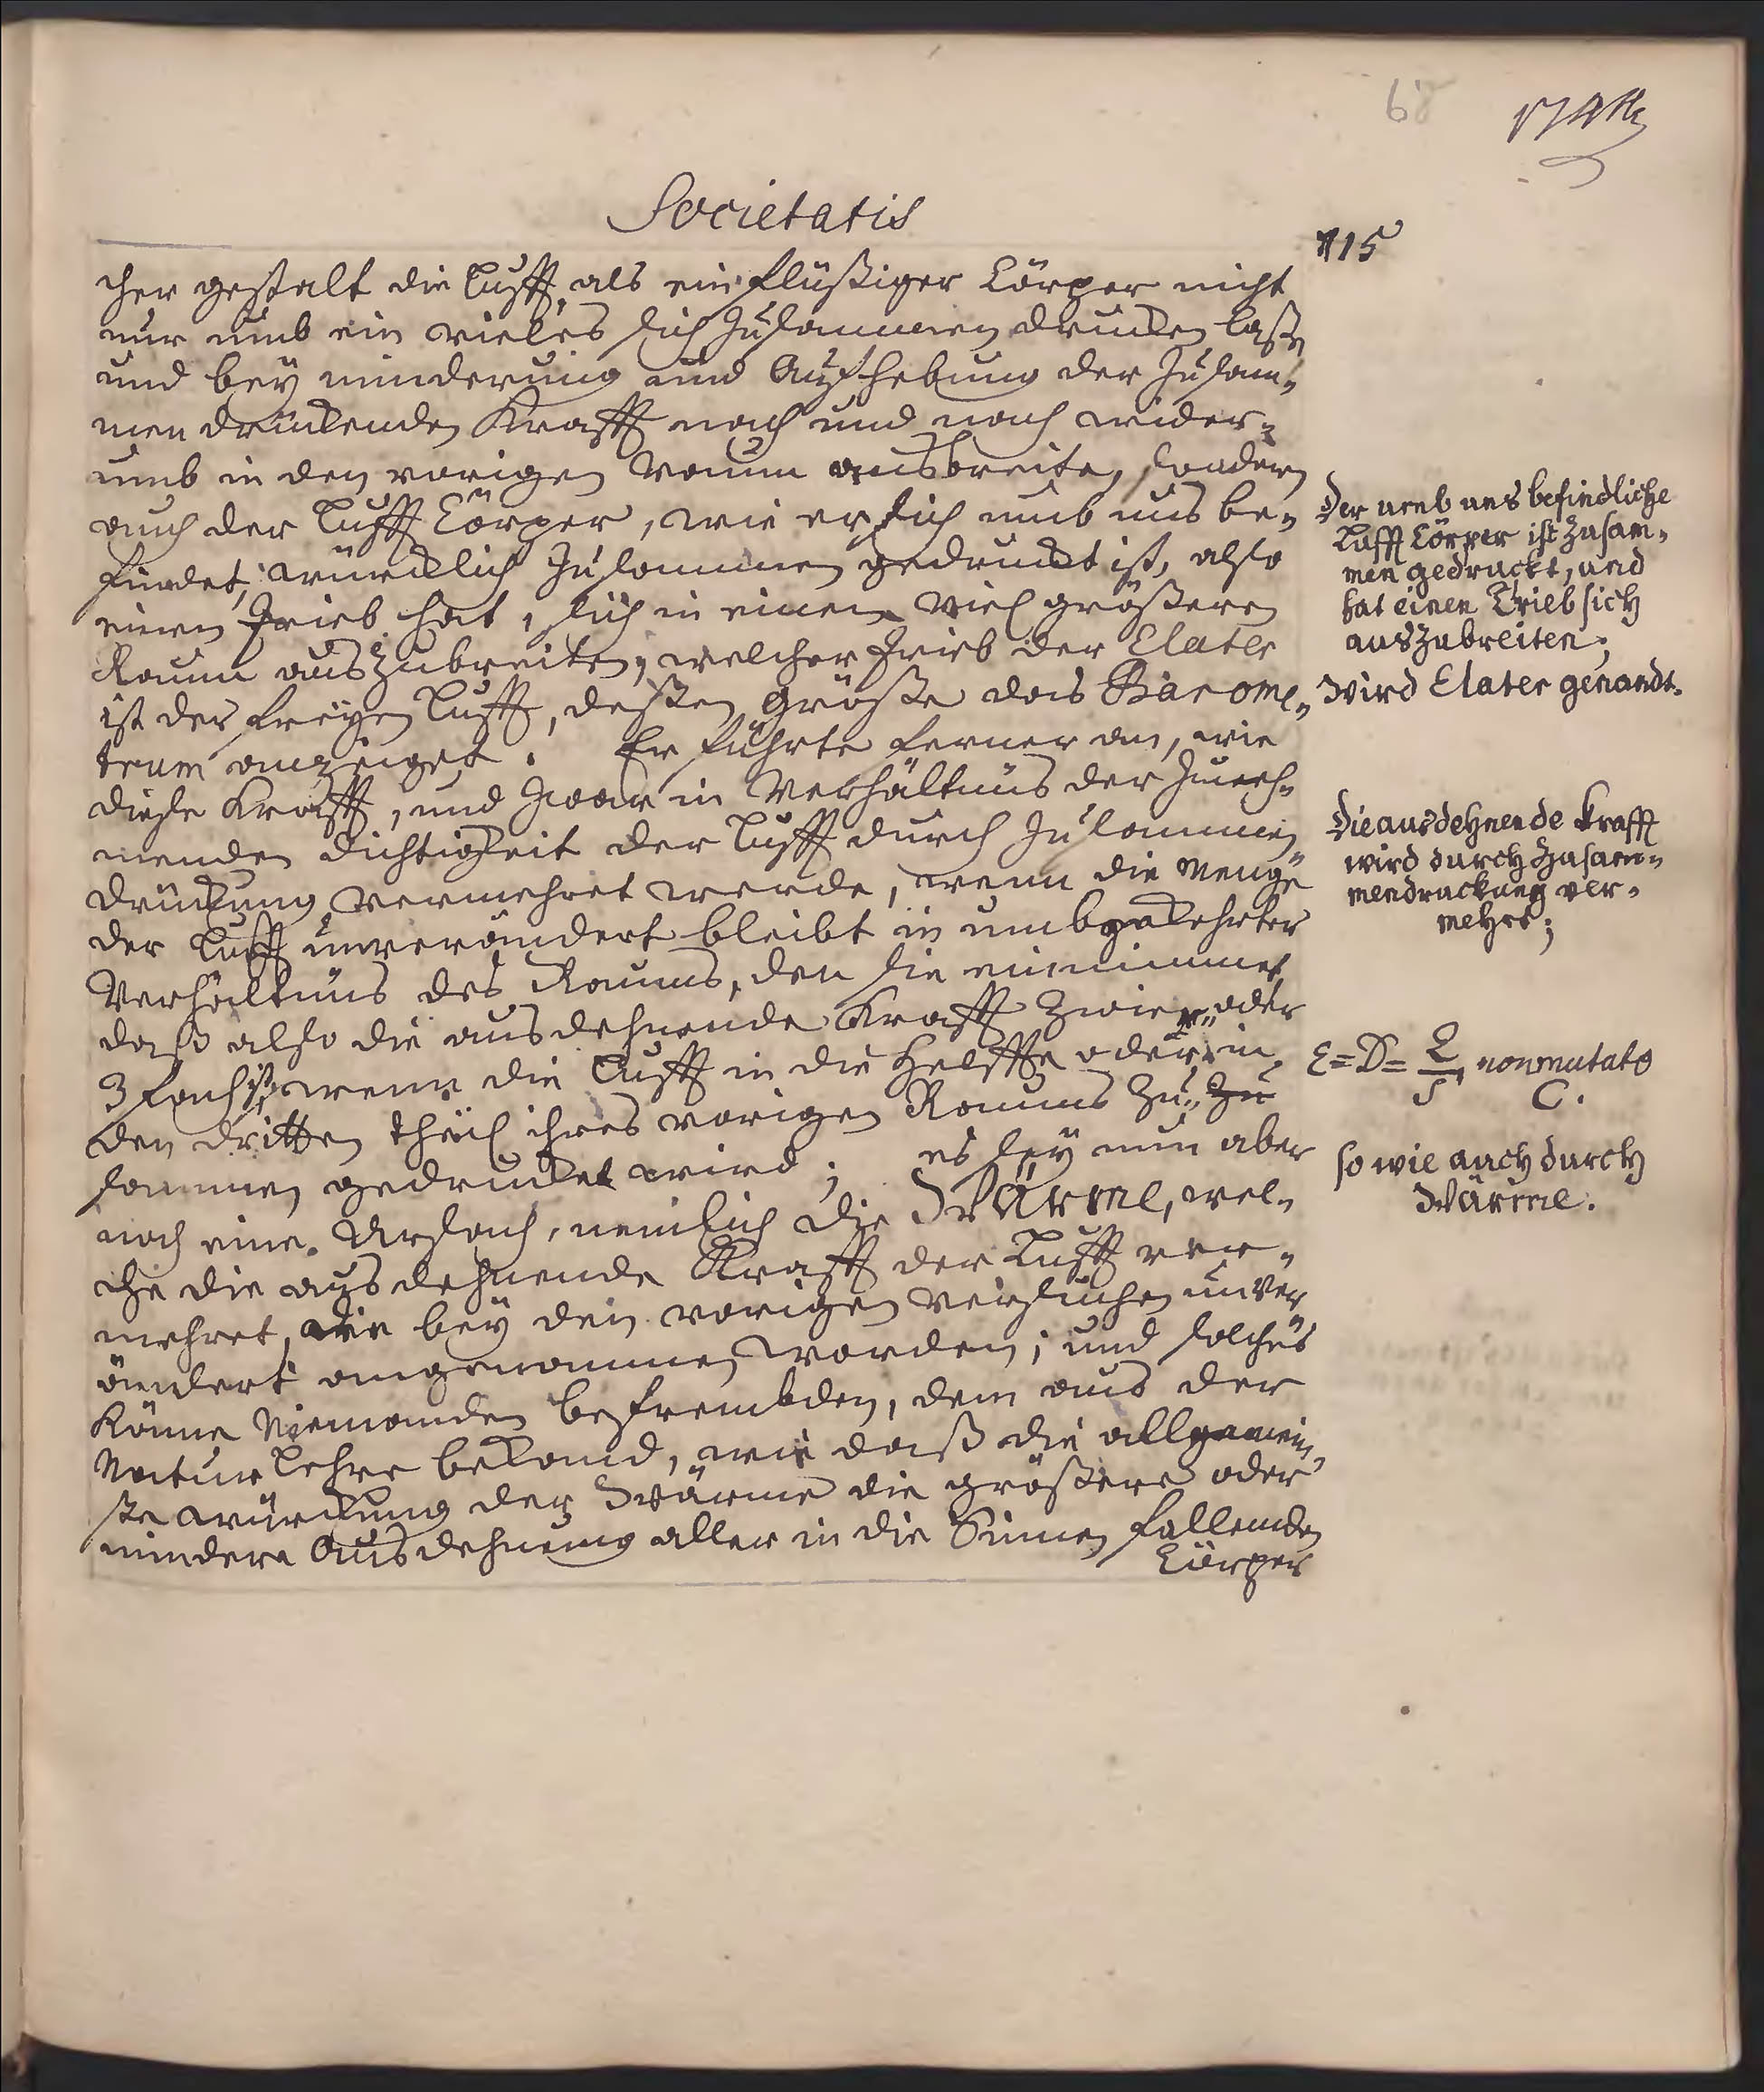 68
Societatis
115
cher gestalt die Lufft, als ein flüßiger Cörper nicht
nur umb ein vieles sich zusammen drucken laße
und bey minderung und Auffhebung der zusam=
men druckenden Krafft nach und nach wider=
umb in den vorigen Raum ausbreite, sondern
auch der Lufft Cörper, wie er sich umb uns be=
findet, würcklich zusammen gedruckt ist, also
einen Trieb hat, sich in einen viel größeren
Raum auszubreiten, welcher Trieb der Elater
ist der freyen Lufft, deßen Größe das Barome=
trum anzeiget. Er führte ferner an, wie
diese Krafft, und zwar in Verhältnüs der zuneh=
menden dichtigkeit der Lufft durch zusammen
drückung vermehret werde, wenn die Menge
der Lufft unverändert bleibt in umbgekehrter
Verhältnüs des Raums, den sie einnimmet
daß also die ausdehnende Krafft zwier oder
3 fach ist, wenn die Lufft in die Helffte oder in
den dritten theil ihres vorigen Raums zu= zu
sammen gedrucket wird; es sey nun aber
noch eine Ursach, nemlich die Wärme, wel=
che die ausdehnende Krafft der Lufft ver=
mehret, die bey den vorigen Versuchen unver
ändert angenommen worden; und solches
könne Niemanden befrembden, dem aus der
Natur Lehre bekand, wie daß die allgemein
ste würckung der Wärme die größere oder
mindere Ausdehnung aller in die Sinnen fallenden
Cörper
Der umb uns befindliche
Lufft Cörper ist zusam=
men gedruckt, und
hat einen Trieb sich
auszubreiten;
Wird Elater genandt.
Die ausdehnende Krafft
wird durch Zusam=
mendruckung ver=
mehrt;
E=D= C/S, non mutato
C.
so wie auch durch
Wärme.